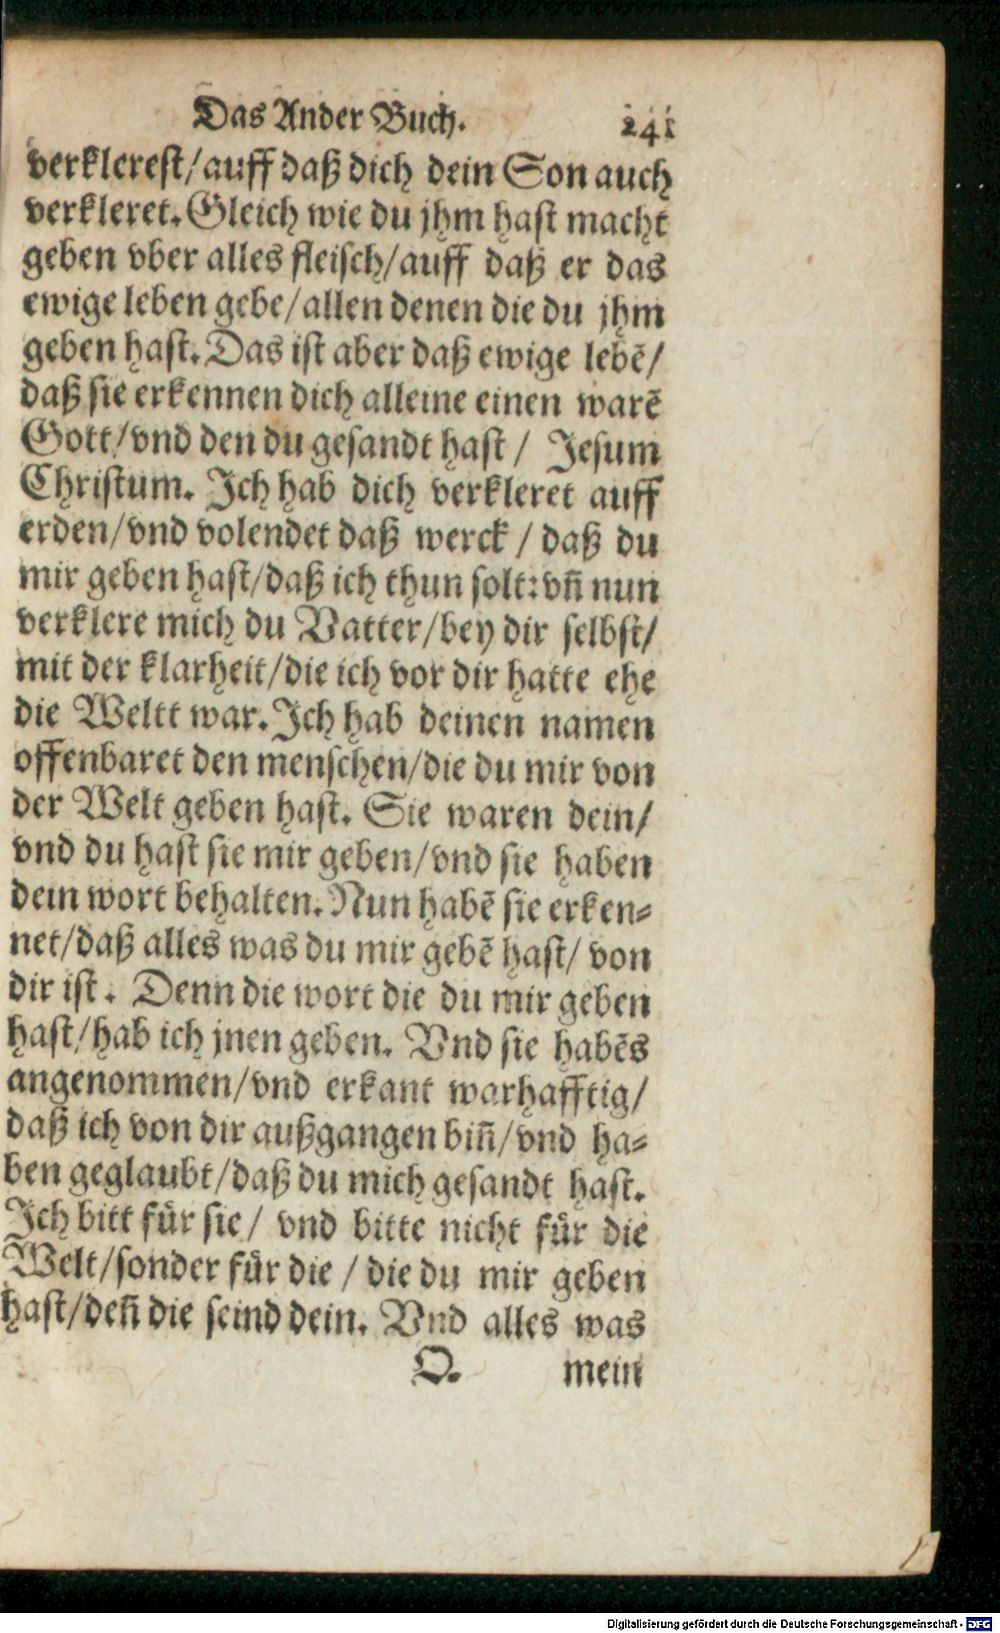 Das Ander Buch. 241
verklerest/auff daß dich dein Son auch
verkleret. Gleich wie du jhm hast macht
geben vber alles fleisch/auff daß er das
ewige leben gebe/allen denen die du jhm
geben hast. Das ist aber daß ewige lebē/
daß sie erkennen dich alleine einen warē
Gott/vnd den du gesandt hast/ Jesum
Christum. Ich hab dich verkleret auff
erden/vnd volendet daß werck/daß du
mir geben hast/daß ich thun solt: vn̄ nun
verklere mich du Vatter/bey dir selbst/
mit der klarheit/die ich vor dir hatte ehe
die Weltt war. Ich hab deinen namen
offenbaret den menschen/die du mir von
der Welt geben hast. Sie waren dein/
vnd du hast sie mir geben/vnd sie haben
dein wort behalten. Nun habē sie erken-
net/daß alles was du mir gebē hast/von
dir ist. Denn die wort die du mir geben
hast/hab ich jnen geben. Vnd sie habēs
angenommen/vnd erkant warhafftig/
daß ich von dir außgangen bin̄/vnd ha-
ben geglaubt/daß du mich gesandt hast.
Ich bitt für sie/ vnd bitte nicht für die
Welt/sonder für die/die du mir geben
hast/den̄ die seind dein. Vnd alles was
O. mein
Digitalisierung gefördert durch die Deutsche Forschungsgemeinschaft - DFG